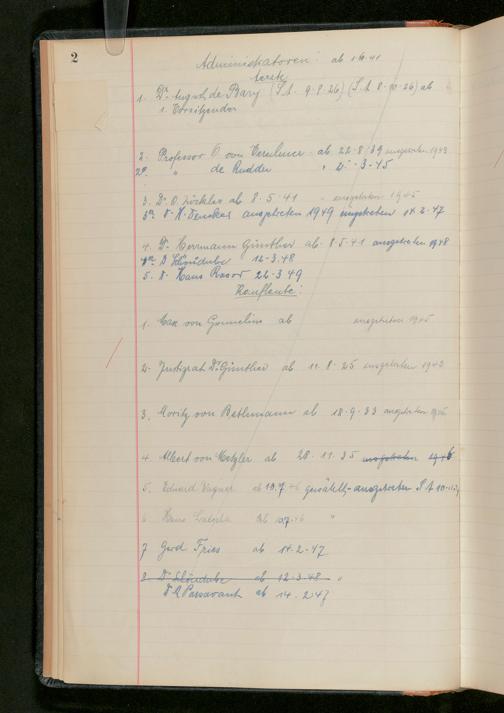 2
Administratoren: ab 1.4.41
Ärzte
1. Dr. August de Bary (S.t. 9.8.26) (S.t. 8.10.26) ab
1. Vorsitzender
2. Professor O von ab 22.8.39 ausgetreten 1943
2a. " de Rudder " 2.-3-45
3. Dr. O. ab 8.5.41 ausgetreten 1945
3a. Dr. H. ausgetreten 1949 eingetreten 14.2.47
4. Dr. Herrmann Günther ab 8.5.41 ausgetreten 1948
4a. D Schöndube 12-3.48
5. Dr. Hans 26-3.49
Kaufleute:
1. Max von ab ausgetreten 1945
2. Justizrat Dr. Günther ab 11.8.25 ausgetreten 1943
3. Moritz von Bethmann ab 18.9.33 ausgetreten
4. Albert von Metzler ab 28.11.35 ausgetreten 1946
5. Eduard ab 19.7.46 gewählt, ausgetreten S.t.
6. Hans ab 46 "
7 Gerd Fries ab 14.2.47
8 Dr. Schöndube ab 12.3.48 "
Dr. Passavant ab 14.2.47